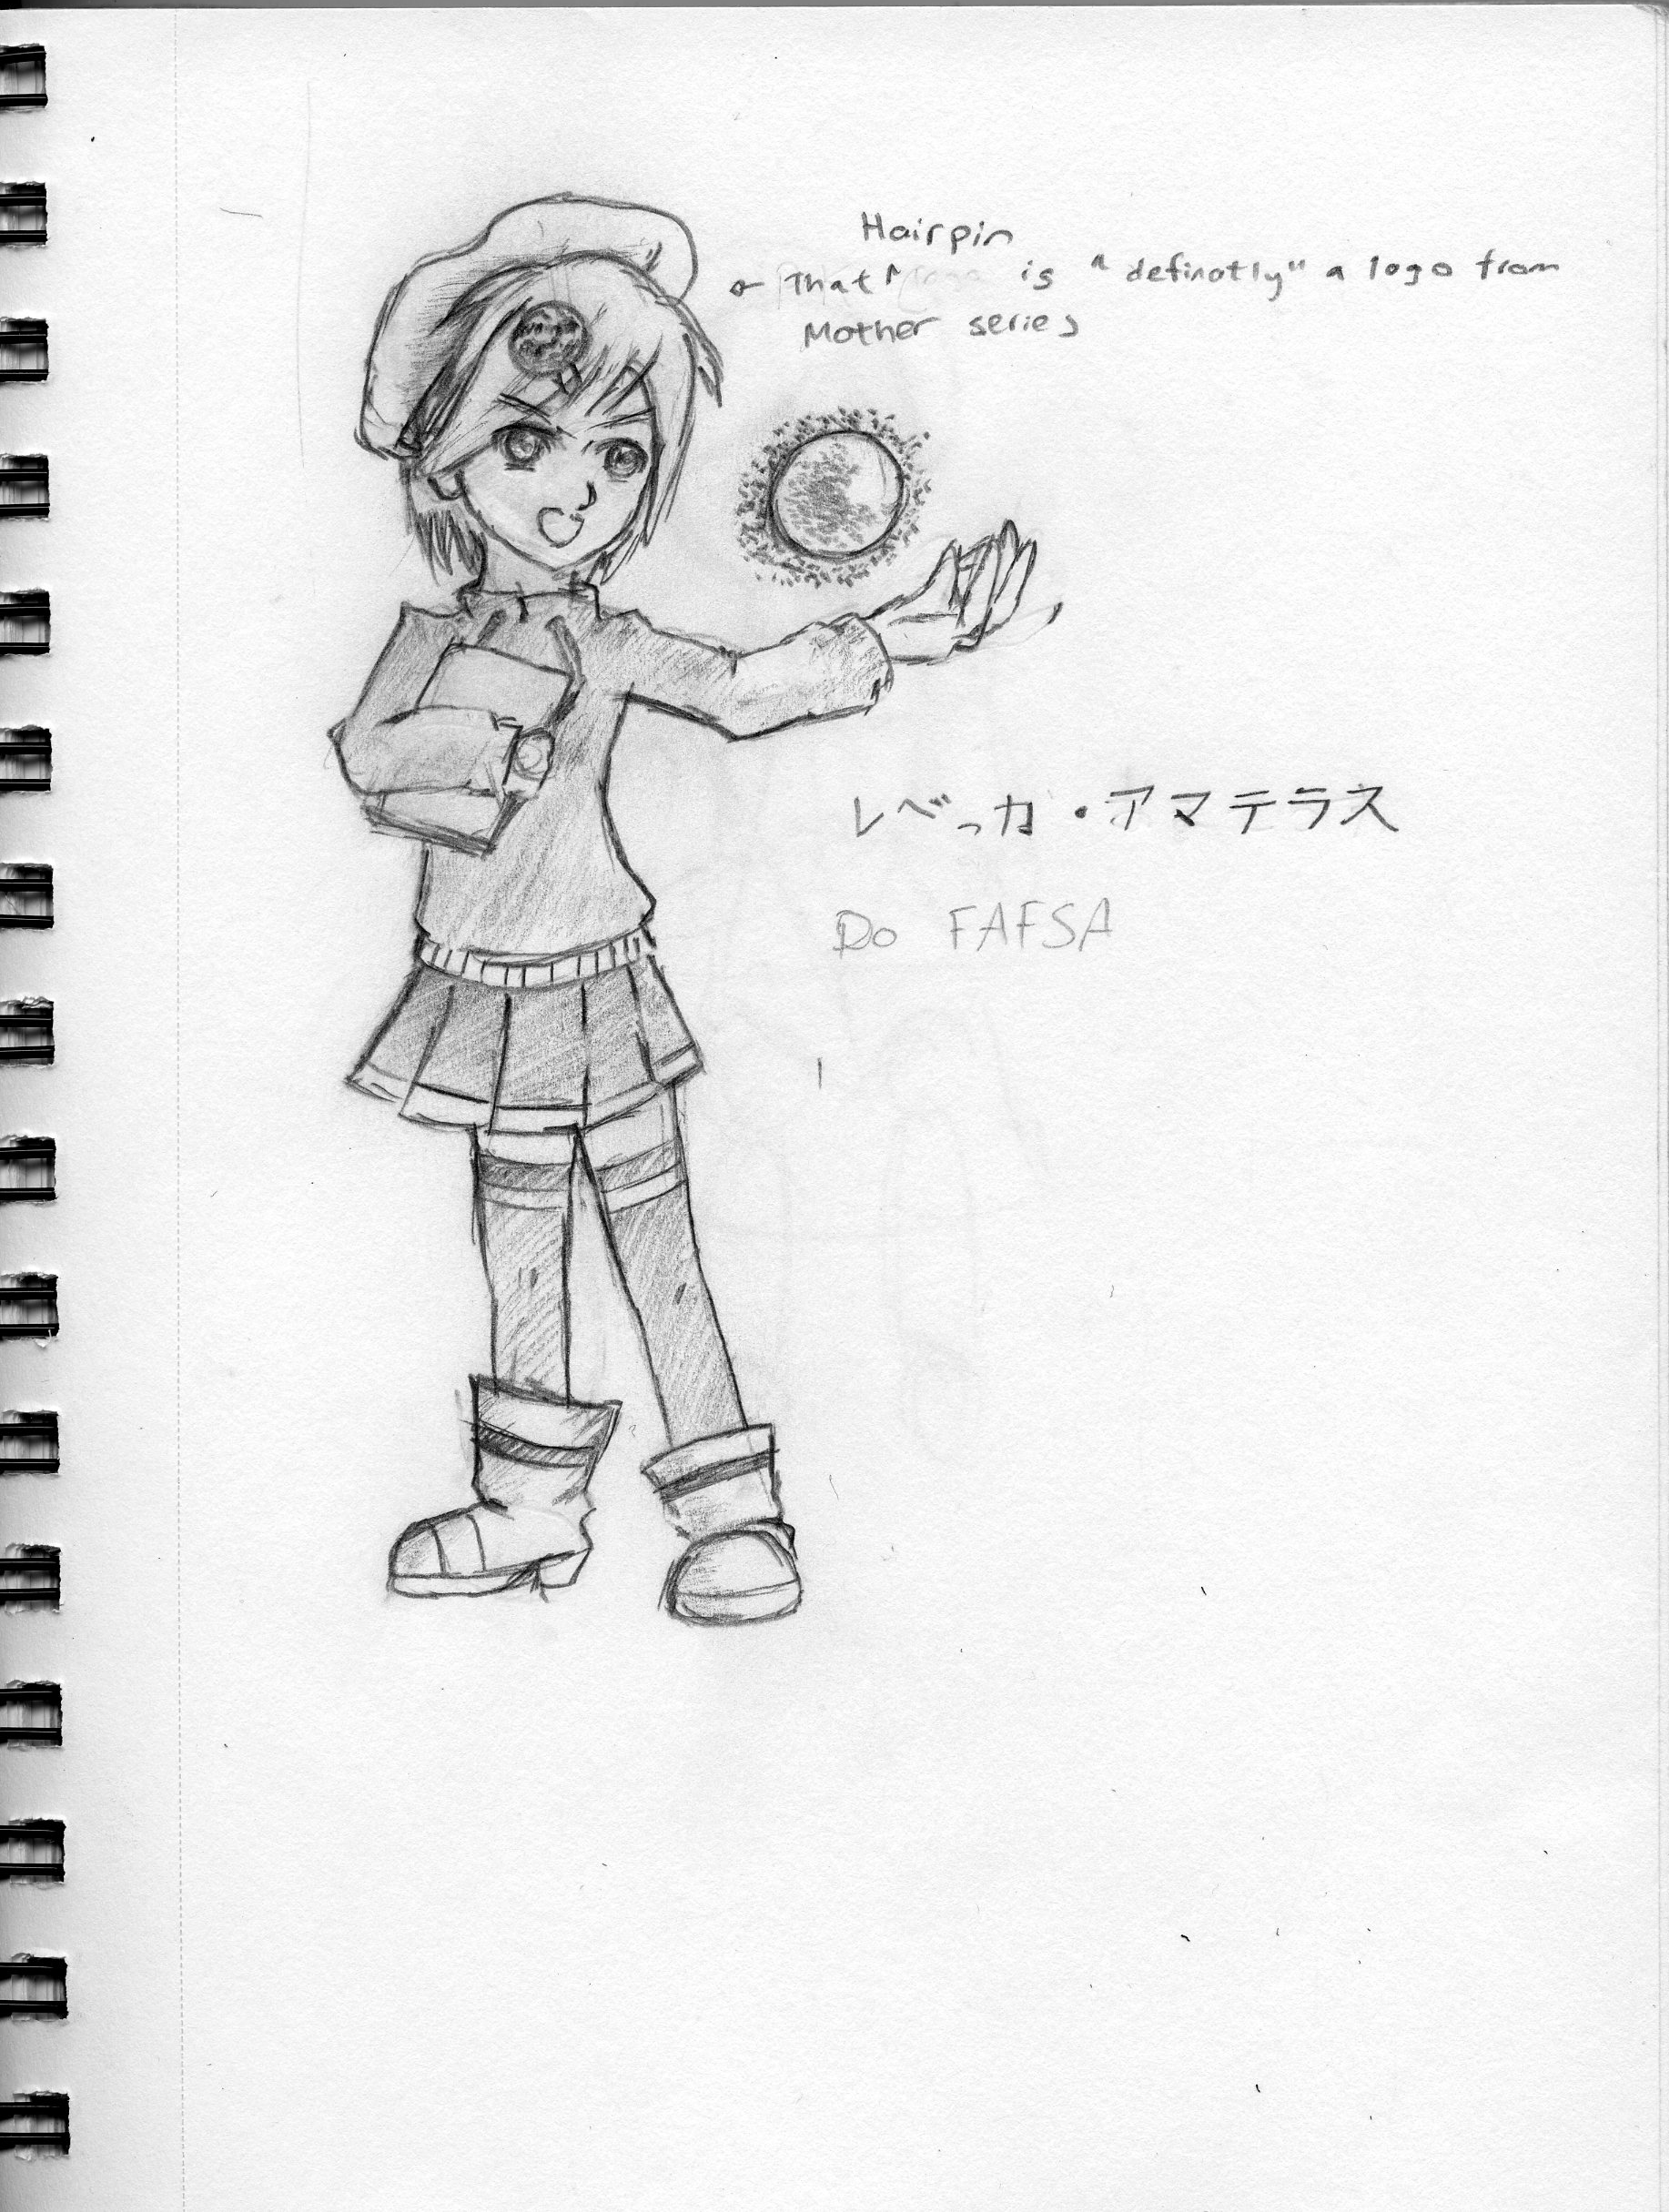 Hairpin
← That ^ is "definatly" a logo from
Mother series
レベッカ・アマテラス
Do FAFSA